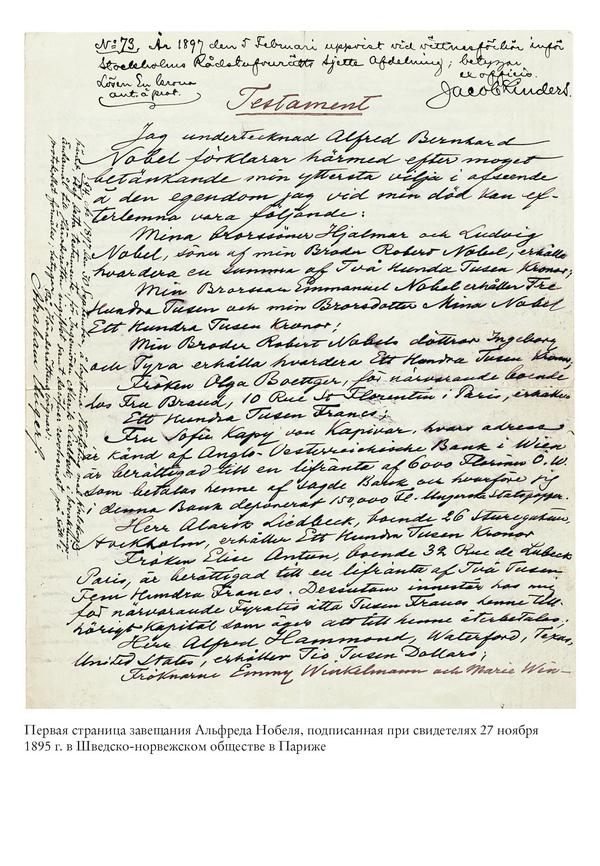 No 73. År 1897 den 5 Februari uppvist vid vittnesförhör inför
Stockholms Rådstufvurätts sjette Afdelning; betygar
ex officio.
Lösen En krona
Jacob Enders.
Testament
Jag undertecknad Alfred Bernhard
Nobel förklarar härmed efter moget
betänkande min yttersta vilja i afseende
å den egendom jag vid min död kan ef-
terlemna vara följande:
Mina Brorssöner Hjalmar och Ludvig
Nobel, söner af min Broder Robert Nobel, erhålla
hvardera en summa af Två Hundra Tusen Kronor;
Min Brorsson Emmanuel Nobel erhåller Tre
Hundra Tusen och min Brorsdotter Mina Nobel
Ett Hundra Tusen Kronor;
Min Broder Robert Nobels döttrar Ingeborg
och Tyra erhålla hvardera Ett Hundra Tusen Kronor;
Fröken Olga Boettger, för närvarande boende
hos Fru Brand, 10 Rue St Florentin i Paris, erhåller
Ett Hundra Tusen Francs;
Fru Sofie Kapy von Kapivar, hvars adress
är känd af Anglo-Oesterreichische Bank i Wien
är berättigad till en lifränta af 6000 Florins Ö.W.
som betalas henne af sagde Bank och hvarföre jag
i denna Bank deponerat 150,000 Fl. i Ungerska Statspapper.
Herr Alarik Liedbeck, boende 26 Sturegatan,
Stockholm, erhåller Ett Hundra Tusen Kronor
Fröken Elise Antun, boende 32 Rue de Lubeck
Paris, är berättigad till en lifränta af Två Tusen
Fem Hundra Francs. Desutom innestår hos mig
för närvarande Fyratio åtta Tusen Francs henne till-
hörigt kapital som äger att till henne återbetalas;
Herr Alfred Hammond, Waterford, Texas,
United States, erhåller Tio Tusen Dollars;
Fröknarne Emmy Winkelmann och Marie Win-
Первая страница завещания Альфреда Нобеля, подписанная при свидетелях 27 ноября
1895 г. в Шведско-норвежском обществе в Париже